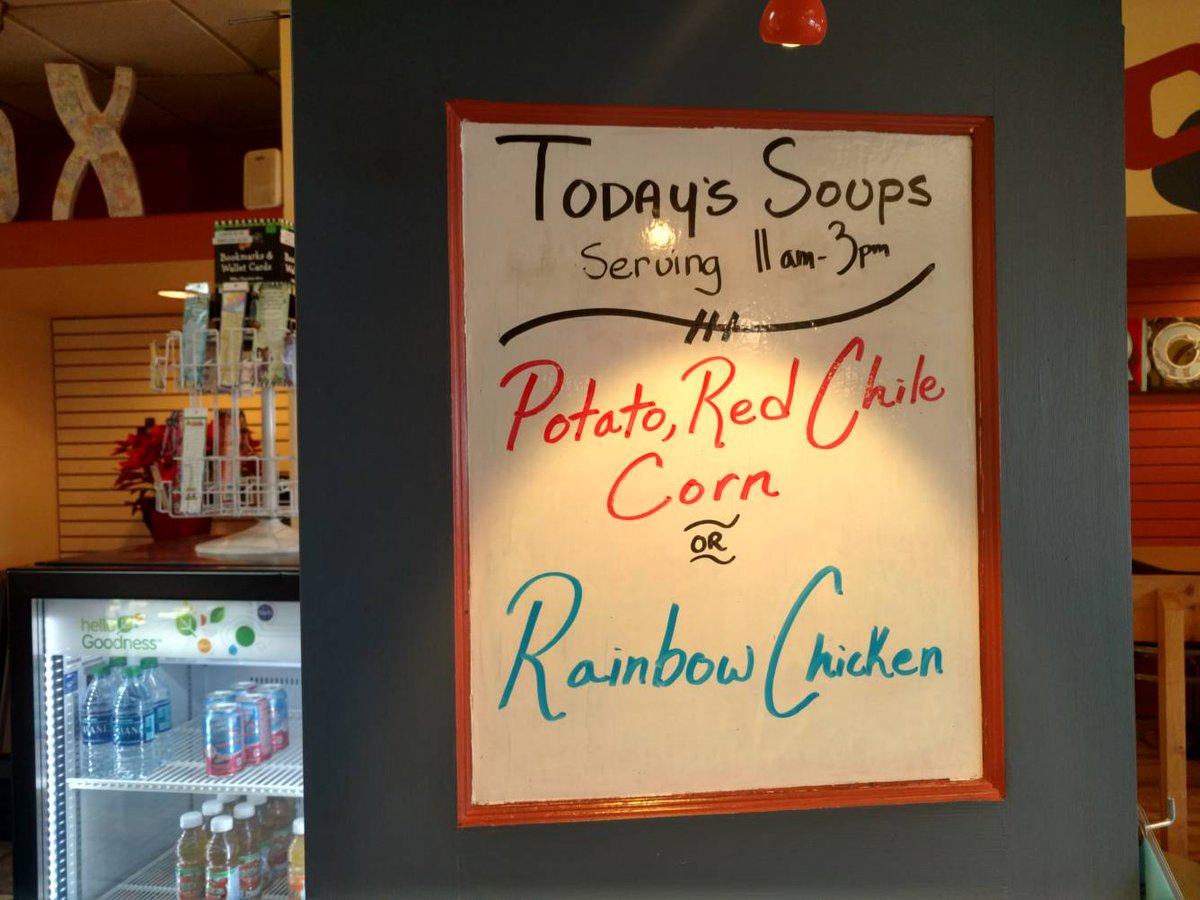 X
Bookmarks &
Wallet Cards
TODAY'S SOUPS
Serving 11am-3pm
Potato, Red Chile
Corn
OR
Rainbow Chicken
hello
Goodness